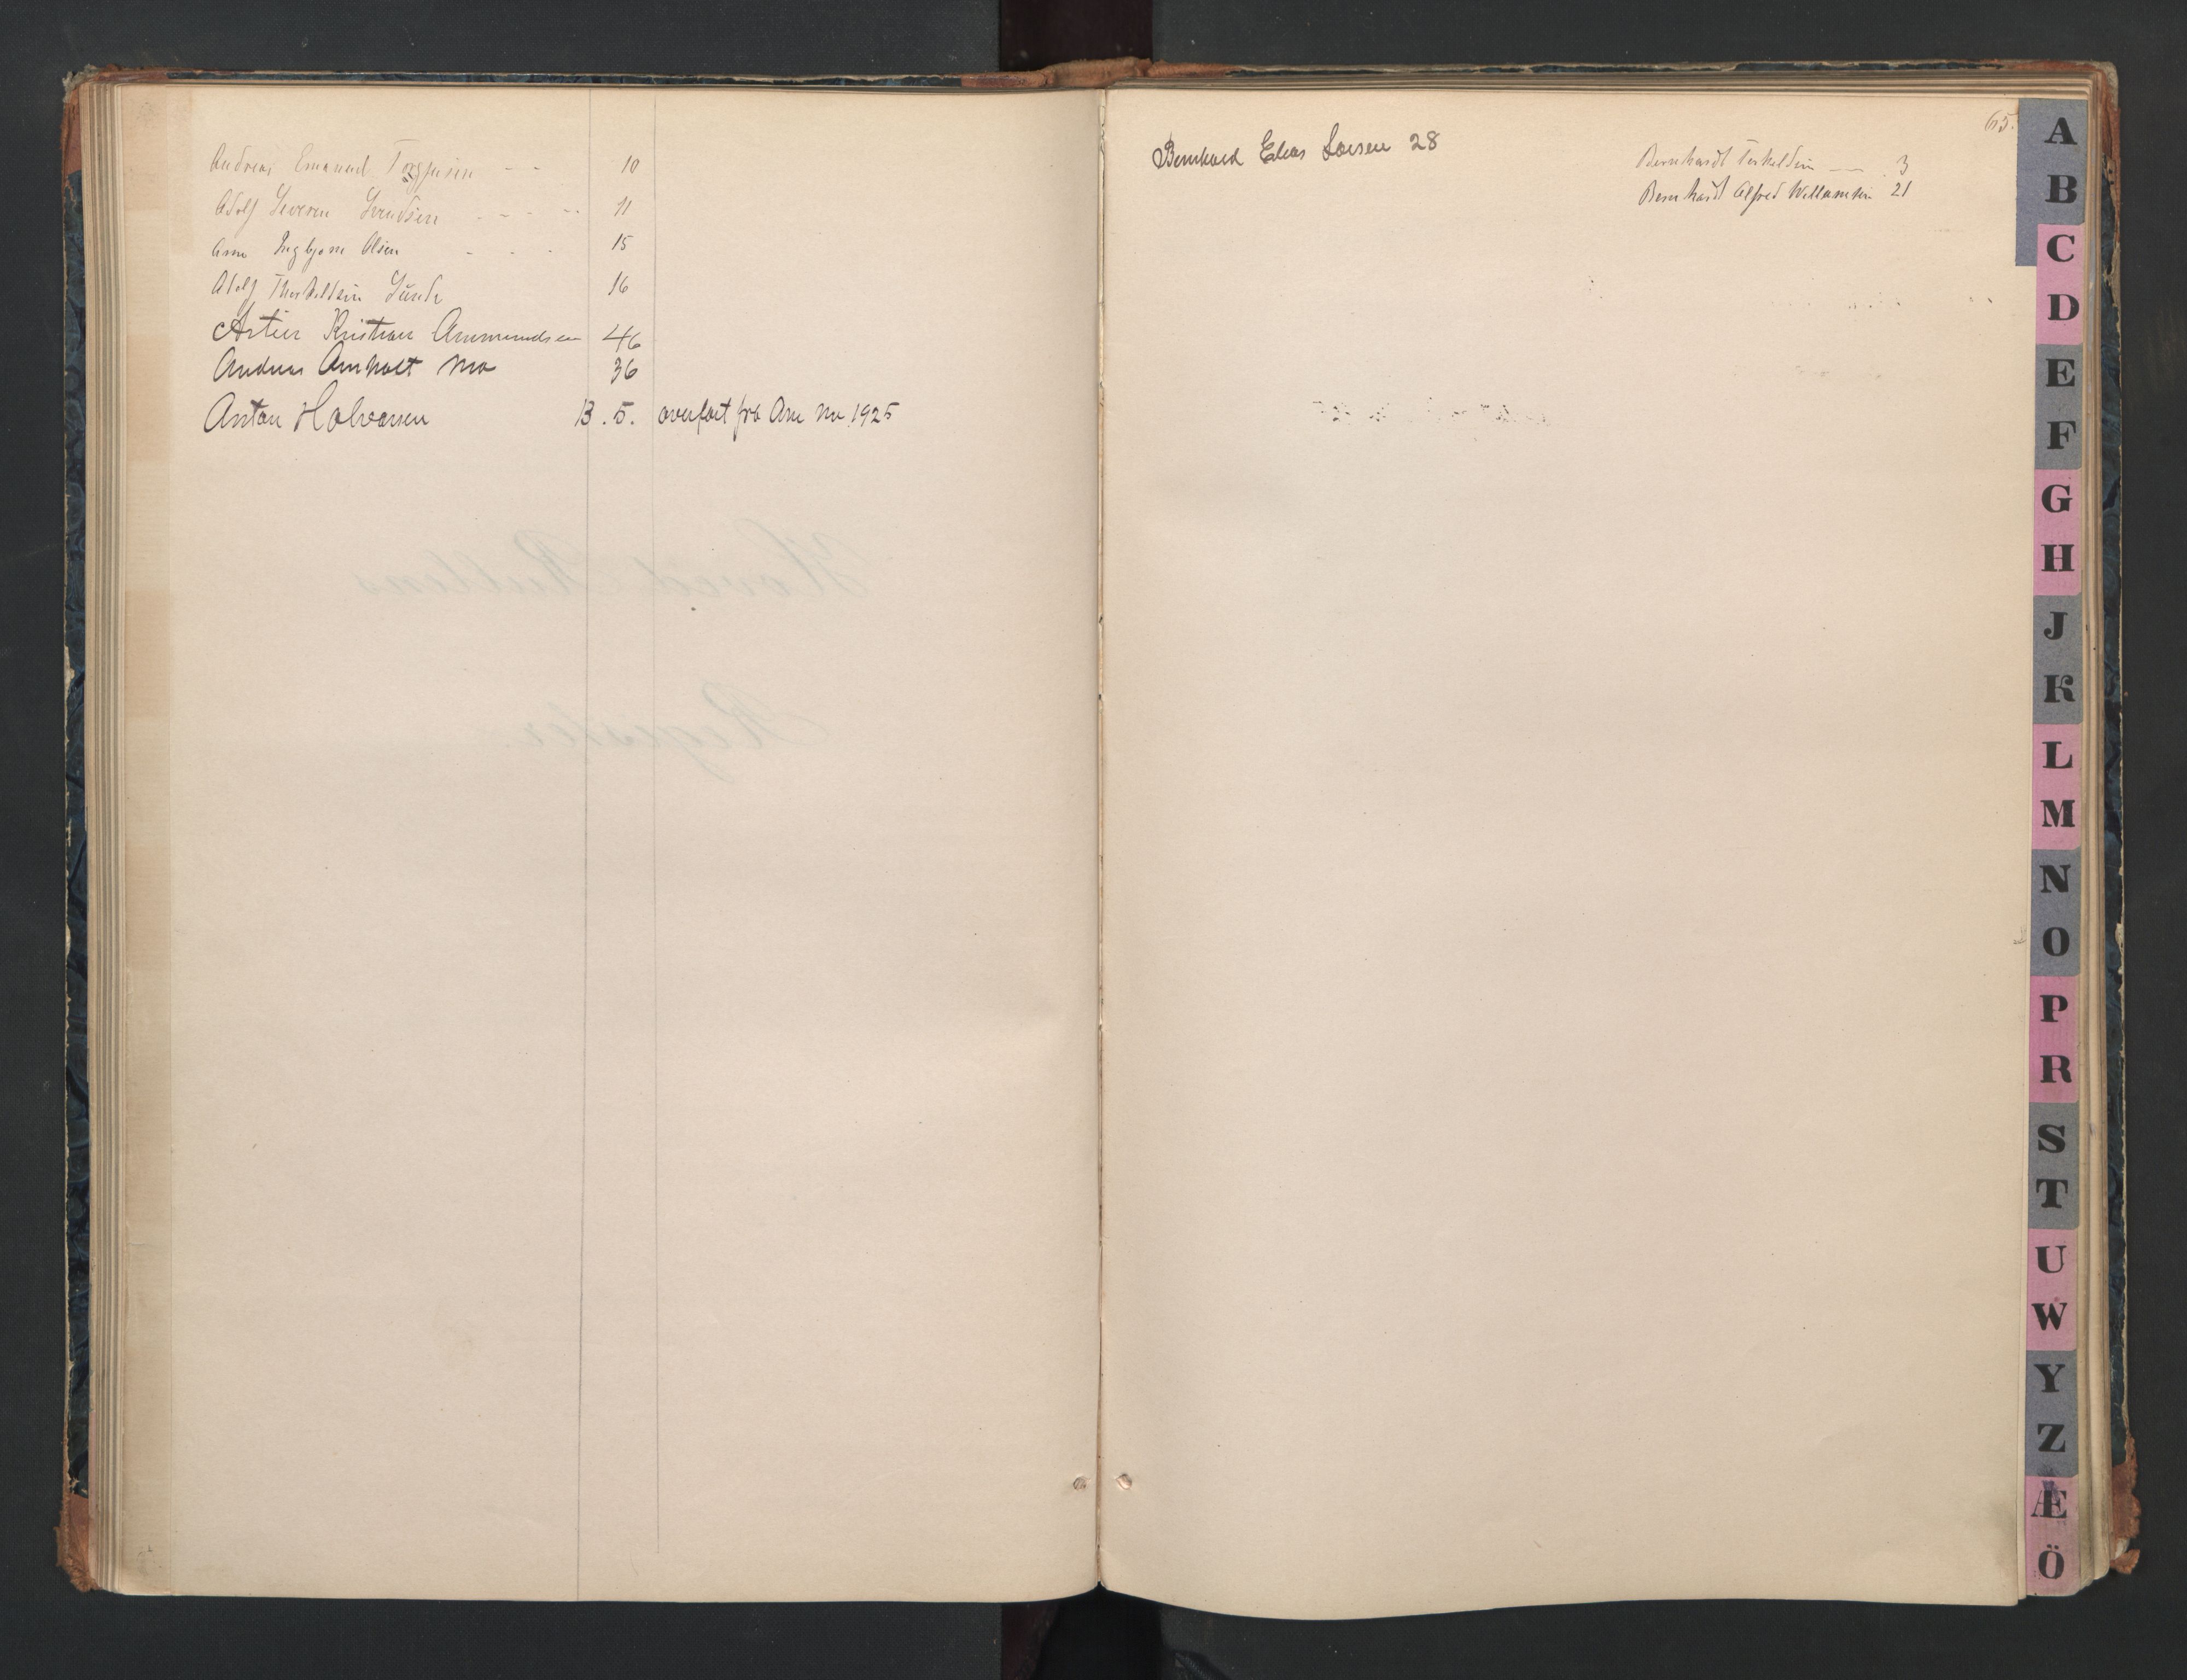 Andreas Emanuel Torgjusen - - 10
Adolf Severin Svendsen - - - - 11
Arne Ingbjørn Olsen - - - 15
Adolf Therkeldsen Lunde 16
Artur Kristian Ammundsen 46
Andreas Arnholt Mo 36
Anton Halvorsen B. 5. overført fra Arn no 1925
Bernhard Elias Larsen 28
65.
Bernhardt Terkeldsen — 3
Bernhardt Alfred Willumsen 21
Hoved Rullens
Register.
A
B
C
D
E
F
G
H
J
K
L
M
N
O
P
R
S
T
U
W
Y
Z
Æ
Ö